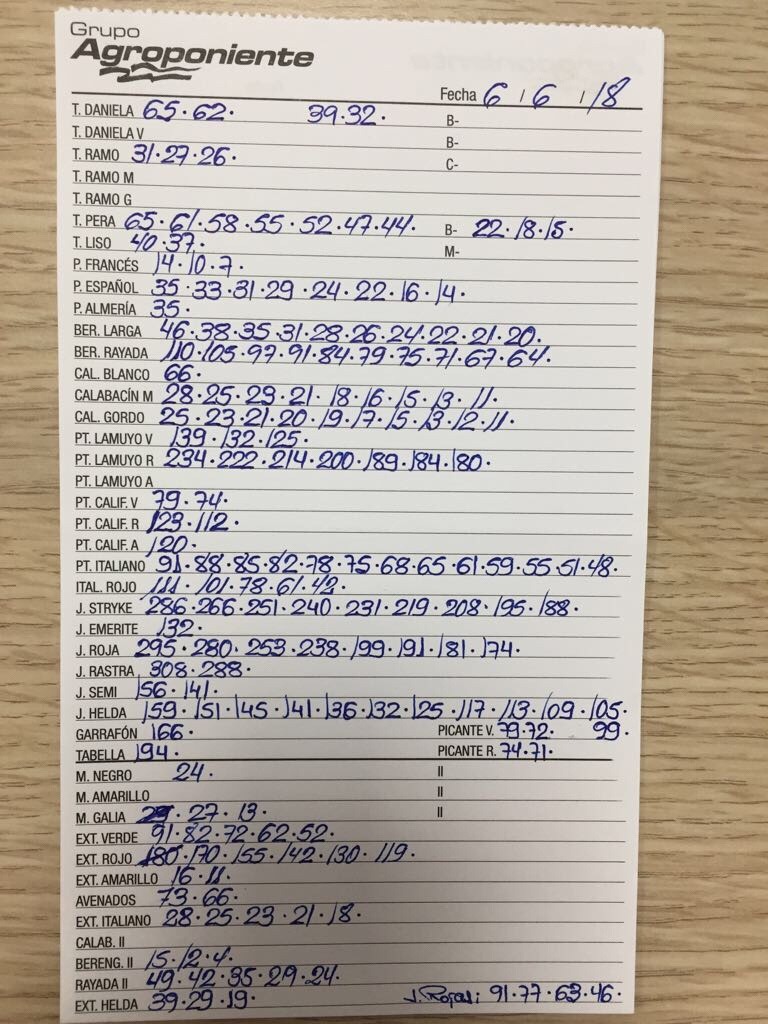 Grupo
Agroponiente
Fecha 6 / 6 / 18
T. DANIELA 65·62· 39·32· B-
T. DANIELA V B-
T. RAMO 31·27·26· C-
T. RAMO M
T. RAMO G
T. PERA 65·61·58·55·52·47·44· B- 22·18·15·
T. LISO 40·37· M-
P. FRANCÉS 14·10·7·
P. ESPAÑOL 35·33·31·29·24·22·16·14·
P. ALMERÍA 35·
BER. LARGA 46·38·35·31·28·26·24·22·21·20·
BER. RAYADA 110·105·97·91·84·79·75·71·67·64·
CAL. BLANCO 66·
CALABACÍN M 28·25·23·21·18·16·15·13·11·
CAL. GORDO 25·23·21·20·19·17·15·13·12·11·
PT. LAMUYO V 139·132·125·
PT. LAMUYO R 234·222·214·200·189·184·180·
PT. LAMUYO A
PT. CALIF. V 79·74·
PT. CALIF. R 123·112·
PT. CALIF. A 120·
PT. ITALIANO 91·88·85·82·78·75·68·65·61·59·55·51·48·
ITAL. ROJO 111·101·78·61·42·
J. STRYKE 286·266·251·240·231·219·208·195·188·
J. EMERITE 132·
J. ROJA 295·280·253·238·199·191·181·174·
J. RASTRA 308·288·
J. SEMI 156·141·
J. HELDA 159·151·145·141·136·132·125·117·113·109·105·
GARRAFÓN 166· PICANTE V. 79·72· 99·
TABELLA 194· PICANTE R. 74·71·
M. NEGRO 24· II
M. AMARILLO II
M. GALIA 27·13· II
EXT. VERDE 91·82·72·62·52·
EXT. ROJO 180·170·155·142·130·119·
EXT. AMARILLO 16·11·
AVENADOS 73·66·
EXT. ITALIANO 28·25·23·21·18·
CALAB. II
BERENG. II 15·12·4·
RAYADA II 49·42·35·29·24·
EXT. HELDA 39·29·19· J. Rojas: 91·77·63·46·